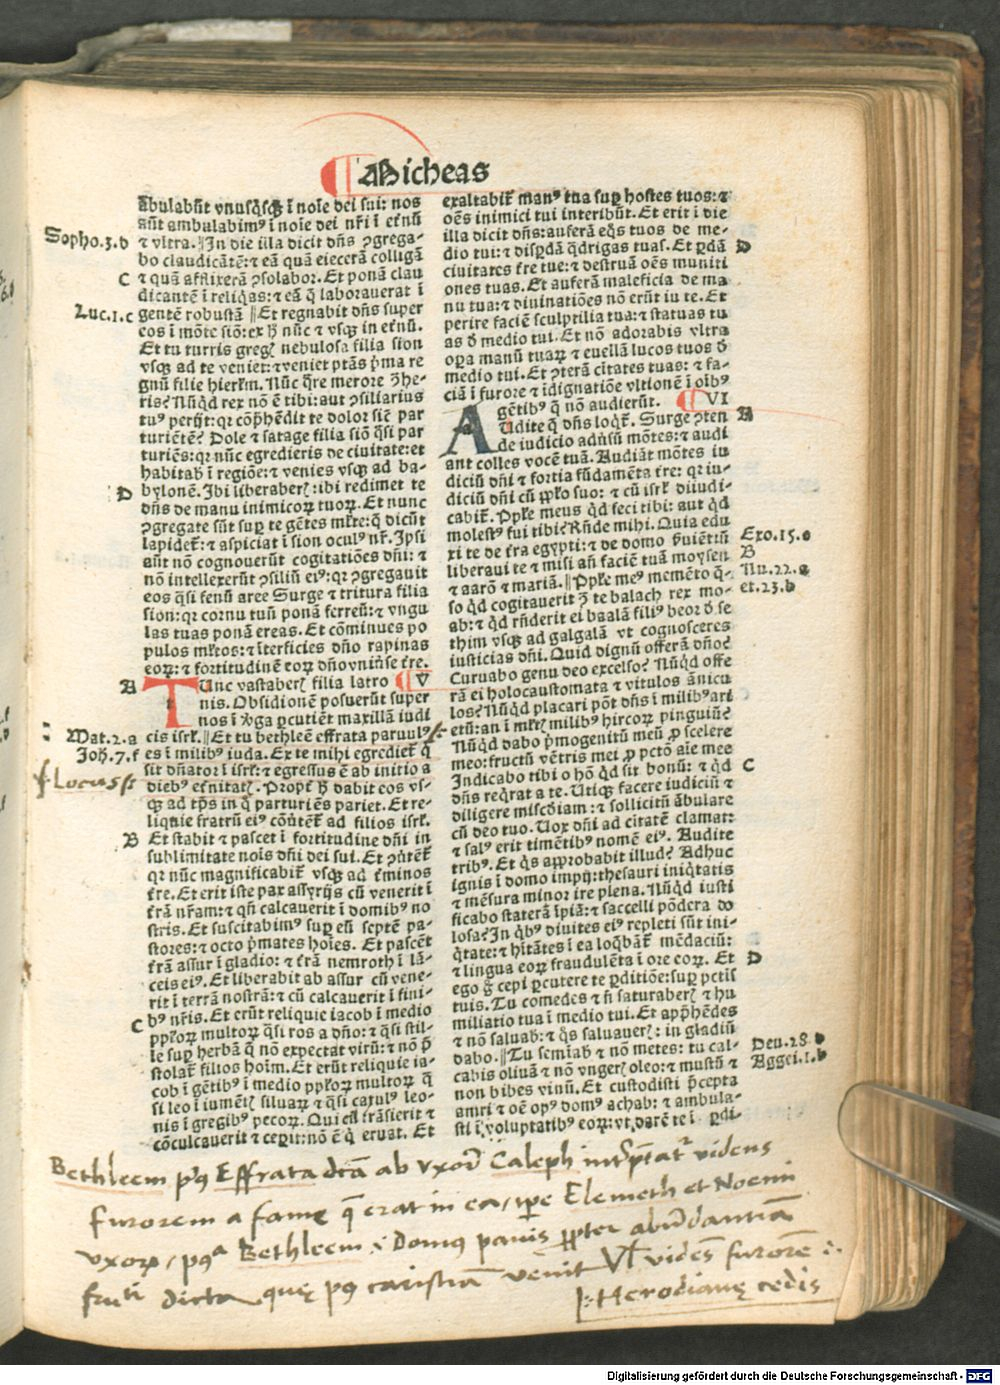 Micheas
ābulabūt vnusq̄sq̄ ī noīe dei sui: nos
aūt ambulabimꝰ ī noīe dei nr̄i ī et̄nū
Sopho.3.d
⁊ vltra. In die illa dicit dn̄s ꝯgrega-
bo claudicātē: ⁊ eā quā eiecerā colligā
C
⁊ quā afflixerā ꝯsolabor. Et ponā clau
dicantē ī reliq̄as: ⁊ eā q̄ laborauerat ī
Luc.1.c
gentē robustā Et regnabit dn̄s super
eos ī mōte siō: ex h̄ nūc ⁊ vsq̄ in et̄nū.
Et tu turris greḡ nebulosa filia sion
vsq̄ ad te veniet: ⁊ veniet ptās p̄ma re
gnū filie hierl̄m. Nūc q̄re merore ꝯhe-
ris? Nūq̄d rex nō ē tibi: aut ꝯsiliarius
tuꝰ perijt: qr cōp̄hēdit te dolor sic̄ par
turiētē? Dole ⁊ satage filia siō q̄si par
turiēs: qr nūc egredieris de ciuitate: et
habitab̄ ī regiōe: ⁊ venies vsq̄ ad ba-
D
bylonē. Ibi liberaberꝭ: ibi redimet te
dn̄s de manu inimicoꝝ tuoꝝ. Et nunc
ꝯgregate sūt suꝑ te gētes ml̄te: q̄ dicūt
lapidet̄: ⁊ aspiciat ī sion oculꝰ nr̄. Ipsi
aūt nō cognouerūt cogitatiōes dn̄i: ⁊
nō intellexerūt ꝯsiliū eiꝰ: qr ꝯgregauit
eos q̄si fenū aree Surge ⁊ tritura filia
sion: qr cornu tuū ponā ferreū: ⁊ vngu
las tuas ponā ereas. Et cōminues po
pulos ml̄tos: ⁊ īterficies dn̄o rapinas
eoꝝ: ⁊ fortitudinē eoꝝ dn̄o vniūse t̄re.
A
Tunc vastaberꝭ filia latro V
nis. Obsidionē posuerūt super
nos ī v̄ga ꝑcutiēt maxillā iudi
Mat.2.a
cis isrl̄. Et tu bethleē effrata paruulꝰ
Joh̄.7.f
es ī milibꝰ iuda. Ex te mihi egrediet̄ q̄
sit dn̄ator ī isrl̄: ⁊ egressus eꝰ ab initio a
Locus
diebꝰ et̄nitatꝭ. Propt̄ h̄ dabit eos vs-
q̄ ad tp̄s in q̄ parturiēs pariet. Et re-
liquie fratrū eiꝰ cōūtēt̄ ad filios isrl̄.
B
Et stabit ⁊ pascet ī fortitudine dn̄i in
sublimitate nois dn̄i dei sui. Et ꝯūtēt̄
qr nūc magnificabit̄ vsq̄ ad t̄minos
t̄re. Et erit iste pax assyrijs cū venerit ī
t̄rā nr̄am: ⁊ qn̄ calcauerit ī domibꝰ no
stris. Et suscitabimꝰ suꝑ eū septē pa-
stores: ⁊ octo p̄mates hoīes. Et pascēt
t̄rā assur ī gladio: ⁊ t̄rā nemroth ī lā-
ceis eiꝰ. Et liberabit ab assur cū vene-
rit ī terrā nostrā: ⁊ cū calcauerit ī fini-
C
bꝰ nr̄is. Et erūt reliquie iacob ī medio
pploꝝ multoꝝ q̄si ros a dn̄o: ⁊ q̄si stil-
le suꝑ herbā q̄ nō expectat virū: ⁊ nō p̄
stolat̄ filios hoīm. Et erūt reliquie ia-
cob ī gētibꝰ ī medio pploꝝ multoꝝ q̄
si leo ī iumētꝭ siluaꝝ ⁊ q̄si catulꝰ leo-
nis ī gregibꝰ pecoꝝ. Qui cū trāsierit ⁊
cōculcauerit ⁊ ceperit: nō ē q̄ eruat. Et
exaltabit̄ manꝰ tua suꝑ hostes tuos: ⁊
oēs inimici tui interibūt. Et erit ī die
illa dicit dn̄s: auferā eq̄s tuos de me-
D
dio tui: ⁊ disꝑdā q̄drigas tuas. Et ꝑdā
ciuitates t̄re tue: ⁊ destruā oēs muniti
ones tuas. Et auferā maleficia de ma
nu tua: ⁊ diuinatiōes nō erūt ī te. Et
perire faciē sculptilia tua: ⁊ statuas tu
as d̄ medio tui. Et nō adorabis vltra
oꝑa manū tuaꝝ ⁊ euellā lucos tuos d̄
medio tui. Et ꝯterā citates tuas: ⁊ fa-
ciā ī furore ⁊ īdignatiōe vltionē ī oībꝰ
gētibꝰ q̄ nō audierūt. VI
A
Audite q̄ dn̄s loq̄t̄. Surge ꝯten
de iudicio adūsū mōtes: ⁊ audi
ant colles vocē tuā. Audiāt mōtes iu
diciū dn̄i ⁊ fortia fūdamēta t̄re: qr iu-
diciū dn̄i cū pplo suo: ⁊ cū isrl̄ diiudi-
cabit̄. Pple meus q̄d feci tibi: aut q̄d
molestꝰ fui tibi? Rn̄de mihi. Quia edu
Exo.15.e
xi te de t̄ra egypti: ⁊ de domo ẜuiētiū
B
liberaui te ⁊ misi an̄ faciē tuā moysen
Nu.22.a
⁊ aarō ⁊ mariā. Pple meꝰ memēto q̄-
et.23.b
so q̄d cogitauerit ꝯ te balach rex mo-
ab: ⁊ q̄d rn̄derit ei baalā filiꝰ beor d̄ se
thim vsq̄ ad galgalā vt cognosceres
iusticias dn̄i. Quid dignū offerā dn̄o?
Curuabo genu deo excelso? Nūq̄d offe
rā ei holocaustomata ⁊ vitulos ānicu
los? Nūq̄d placari pōt dn̄s ī milibꝰ ari
etū: an ī ml̄tꝭ milibꝰ hircoꝝ pinguiū?
Nūq̄d dabo p̄mogenitū meū ꝓ scelere
meo: fructū vētris mei ꝓ pctō aīe mee
C
Indicabo tibi o hō q̄d sit bonū: ⁊ q̄d
dn̄s req̄rat a te. Utiq̄ facere iudiciū ⁊
diligere misc̄diam: ⁊ sollicitū ābulare
cū deo tuo. Uox dn̄i ad citatē clamat:
⁊ salꝰ erit timētibꝰ nomē eiꝰ. Audite
tribꝰ. Et q̄s approbabit illud? Adhuc
ignis ī domo impij: thesauri iniq̄tatis
⁊ mēsura minor ire plena. Nūq̄d iusti
ficabo staterā īpiā: ⁊ saccelli pōdera do
losa? In q̄bꝰ diuites eiꝰ repleti sūt ini-
q̄tate: ⁊ hītātes ī ea loq̄bāt̄ mēdaciū:
D
⁊ lingua eoꝝ fraudulēta ī ore eoꝝ. Et
ego g̊ cepi ꝑcutere te ꝑditiōe: suꝑ pctis
tuis. Tu comedes ⁊ n̄ saturaberꝭ ⁊ hu
miliatio tua ī medio tui. Et app̄hēdes
⁊ nō saluab̄: ⁊ q̄s saluauerꝭ: in gladiū
Deu.28
dabo. Tu semīab̄ ⁊ nō metes: tu cal-
Aggei.1.b
cabis oliuā ⁊ nō vngerꝭ oleo: ⁊ mustū ⁊
non bibes vinū. Et custodisti p̄cepta
amri ⁊ oē opꝰ domꝰ achab: ⁊ ambula-
sti ī voluptatibꝰ eoꝝ: vt darē te ī ꝑdi-
Bethleem pꝰ Effrata dicta ab vxore Caleph interp̄tat̄ videns
furorem a fame q̄ erat in ea tp̄e Elemeth et Noemi
vxorꝭ / pꝰa Bethleem .i. Domꝰ panis ꝓpter abūdantiā
fruct̄i dicta que pꝰ caristiā venit Vl' videns furorē .i.
Herodiane cedis
Digitalisierung gefördert durch die Deutsche Forschungsgemeinschaft - DFG